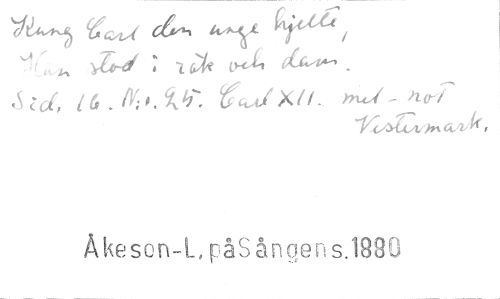 Kung Carl den unge hjelte,
Han stod i rök och dam.
Sid. 16. N:o. 25. Carl XII. mel-not
Vestermark.
Åkeson-L, påSångens.1880